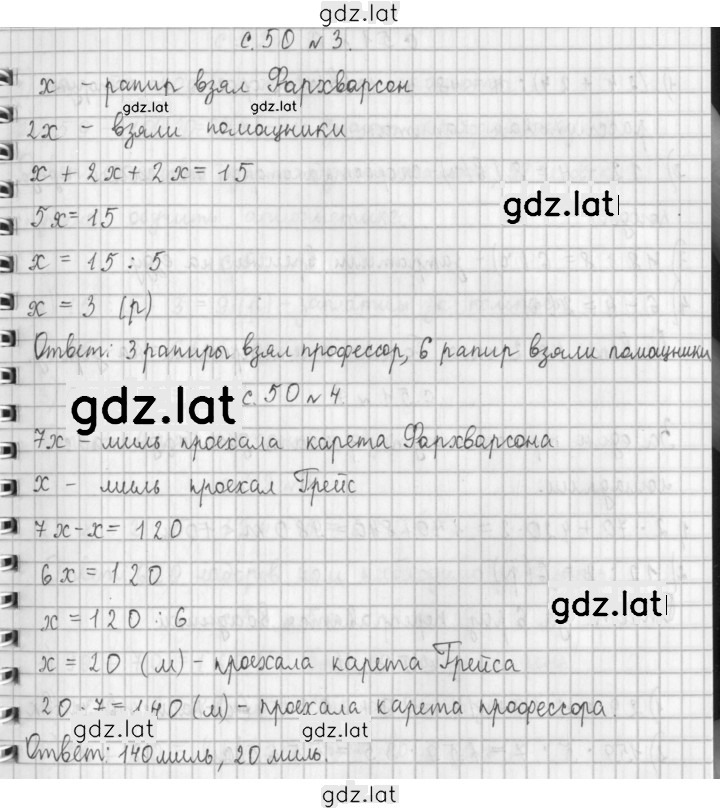 gdz.lat
с. 50 № 3.
x - рапир взял Фархварсон
gdz.lat gdz.lat
2x - взяли помощники
x + 2x + 2x = 15
gdz.lat
5x = 15
x = 15 : 5
x = 3 (р)
Ответ: 3 рапиры взял профессор, 6 рапир взяли помощники
gdz.lat
с. 50 № 4.
7x - миль проехала карета Фархварсона
x - миль проехал Грейс
7x - x = 120
6x = 120
gdz.lat
x = 120 : 6
x = 20 (м) - проехала карета Грейса
20 · 7 = 140 (м) - проехала карета профессора.
gdz.lat gdz.lat
Ответ: 140 миль, 20 миль.
gdz.lat